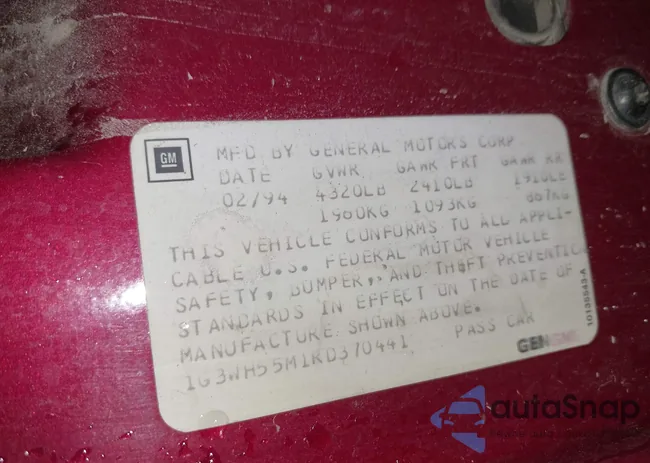 GM
MFD BY GENERAL MOTORS CORP
DATE GVWR GAWR FRT GAWR RR
02/94 4320LB 2410LB 1910LB
1960KG 1093KG 867KG
THIS VEHICLE CONFORMS TO ALL APPLI-
CABLE U.S. FEDERAL MOTOR VEHICLE
SAFETY, BUMPER, AND THEFT PREVENTION
STANDARDS IN EFFECT ON THE DATE OF
MANUFACTURE SHOWN ABOVE.
1G3WH55M1RD370441 PASS CAR
10135543-A
autoSnap